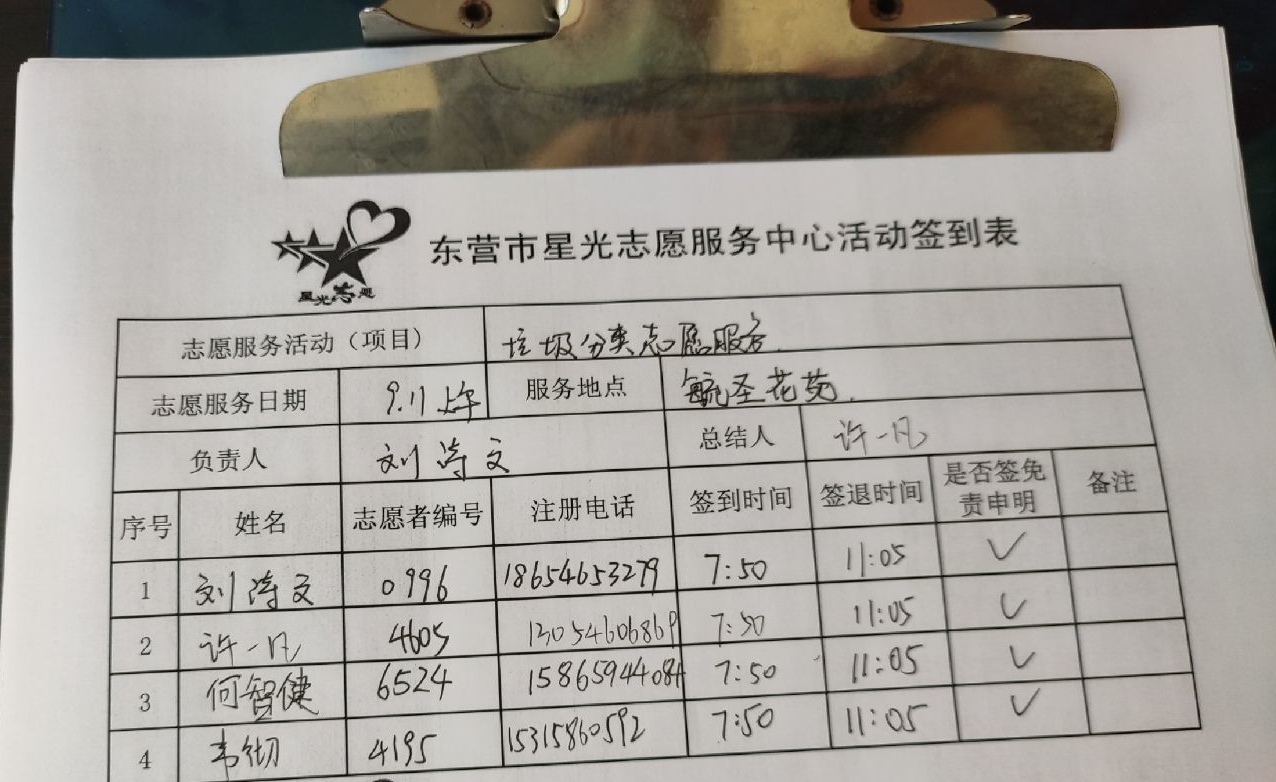 星光志愿
东营市星光志愿服务中心活动签到表
志愿服务活动（项目） 垃圾分类志愿服务.
志愿服务日期 9.11上午 服务地点 毓圣花苑.
负责人 刘涛文 总结人 许一凡
序号 姓名 志愿者编号 注册电话 签到时间 签退时间 是否签免责申明 备注
1 刘涛文 0996 18654653279 7:50 11:05 ✓
2 许一凡 4605 13054606869 7:50 11:05 ✓
3 何智健 6524 15865944084 7:50 11:05 ✓
4 韦彻 4195 15315860592 7:50 11:05 ✓